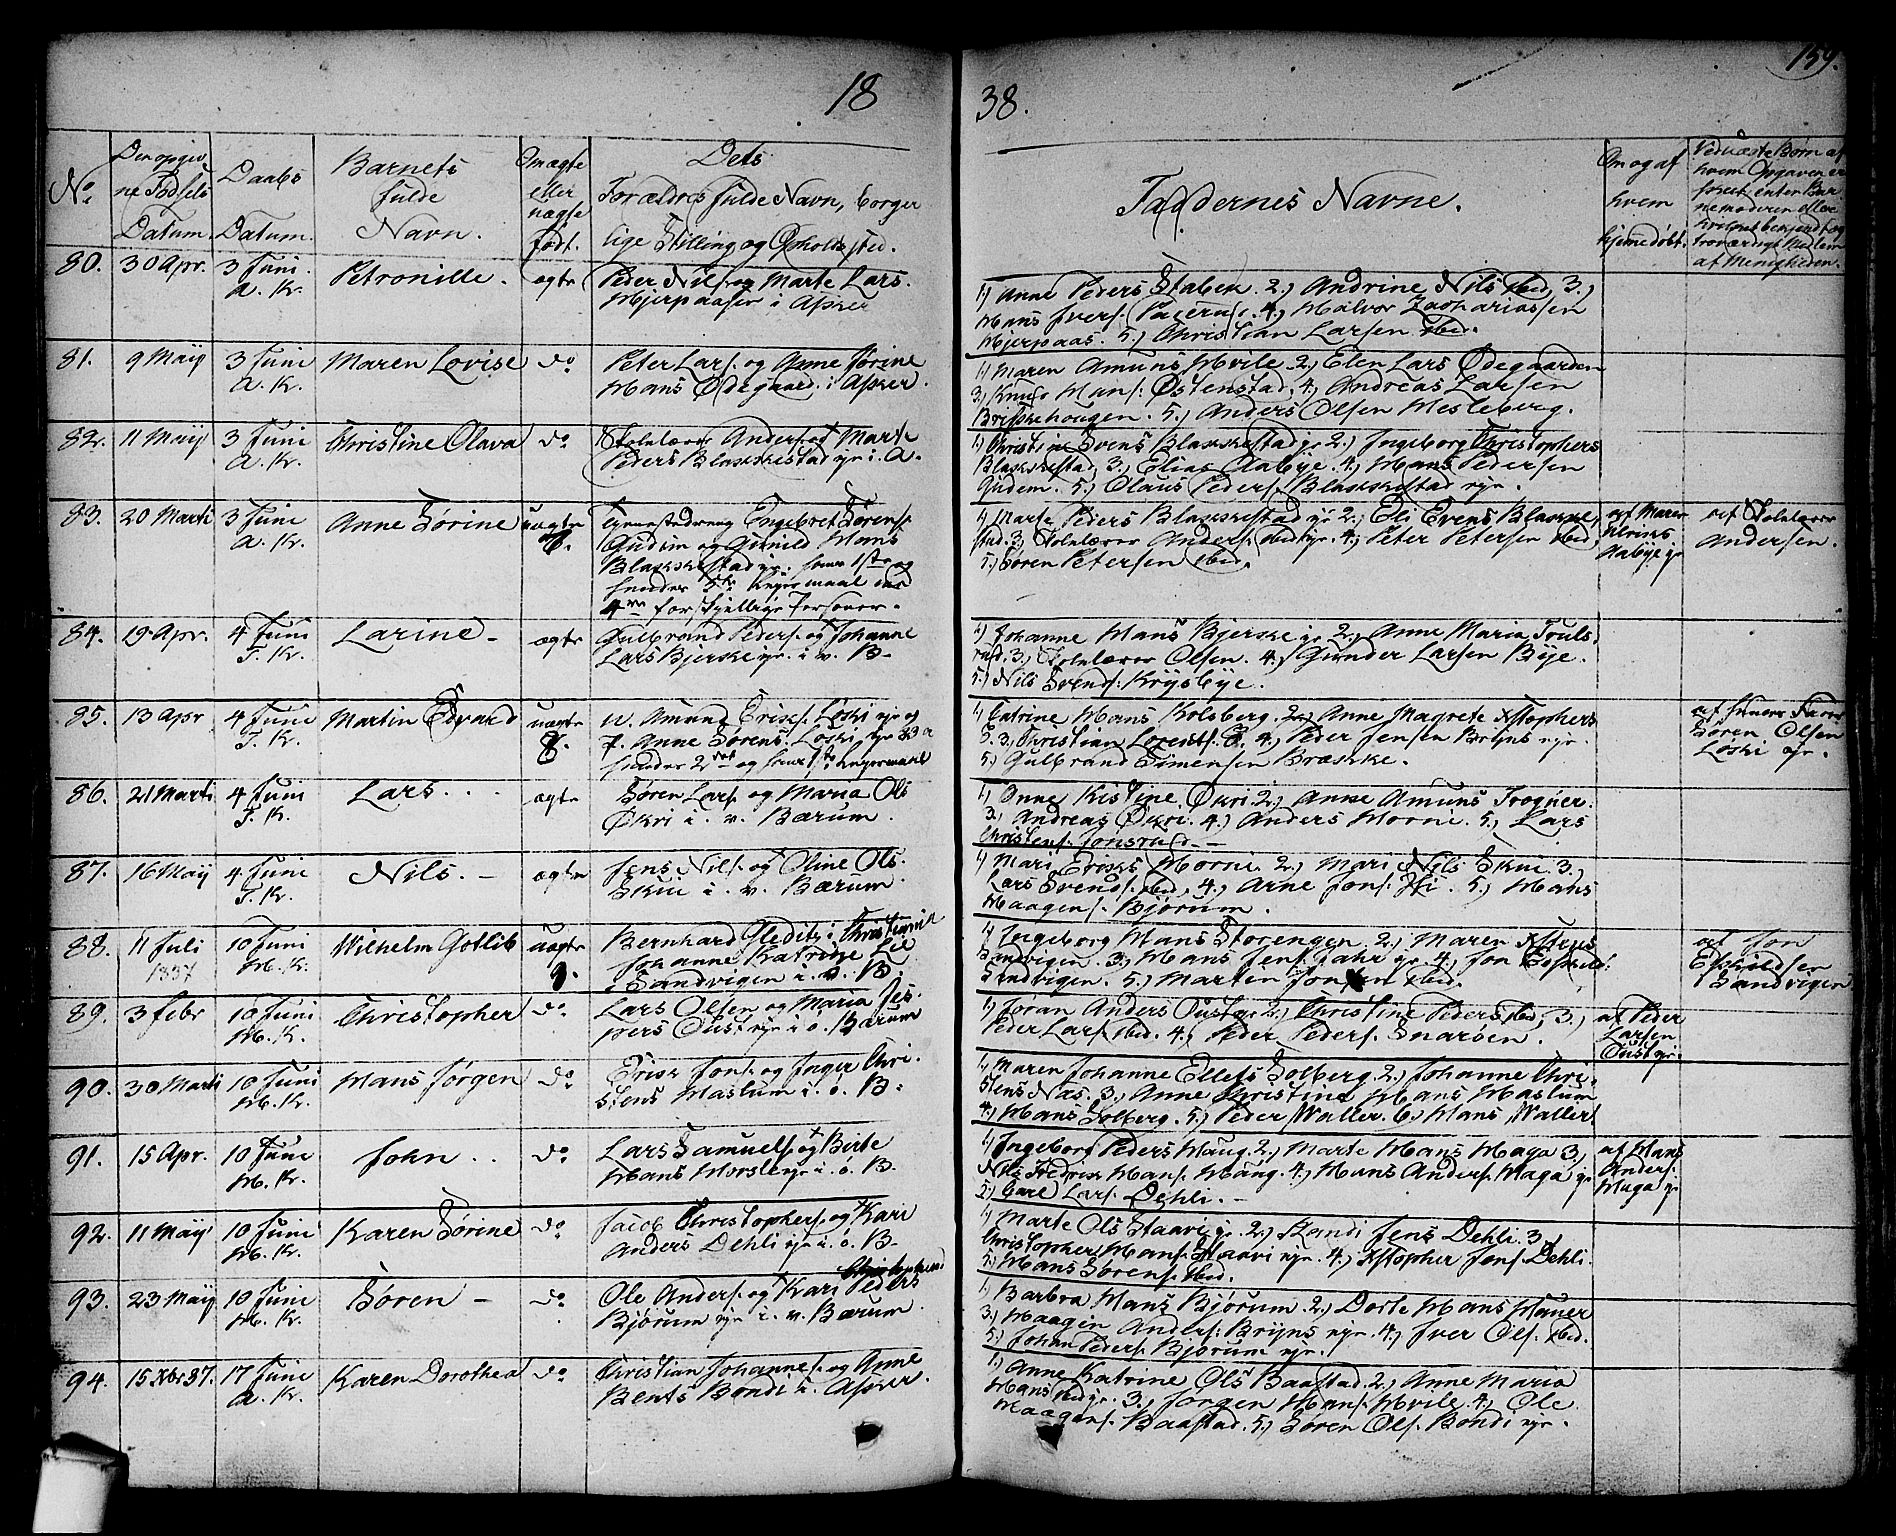 18
38.
159.
No.
Den opgiv-
ne Fødsels
Datum.
Daabs
Datum.
Barnets
fulde
Navn.
Om ægte
eller
uægte
født.
Dets
Forældres fulde Navn, borger
lige Stilling og Opholdssted.
Faddernes Navne.
Om og af
hvem
hjemedøbt.
Ved uægte Børn af
hvem Opgaven er
skeet, enten Bar
nemoderen eller
troværdigt Medlem
af Menigheden.
80.
30 Apr.
3 Juni
A. K.
Petronille.
ægte
Peder Nils. og Marte Lars.
Hjerpaasen i Asker
1, Anne Peders Staben. 2, Andrine Nils ibid, 3,
Hans Ivers. 4, Halvor Zachariassen
Hjerpaas. 5, Christian Larsen ibid.
81.
9 Maij
3 Juni
A. K.
Maren Lovise
do
Peter Lars. og Anne Jørine
Hans Ødegaard. i Asker.
1, Maren Amuns Hvile 2, Elen Lars Ødegaarden
3, Knud Hans. Østenstad. 4, Andreas Larsen
Briskehougen. 5, Anders Olsen Hesleberg.
82.
11 Maij
3 Juni
A. K.
Christine Olava
do
Skolelærer Anders. og Marte
Peders Blakkestad eje i. A.
1, Christine Svens Blakkestad ej. 2, Ingeborg Christophers
Blakkestad, 3, Elias Aabye. 4, Hans Pedersen
Gudem. 5, Olaus Peders. Blakkestad eje.
83.
20 Marti
3 Juni
A. K.
Anne Sørine
uægte
8.
Tjenestedreng Engebret Sørens.
Gudim og Gunild Hans
Blakkestad ej. hans 1ste og
hendes 5te Lejermaal med
4re forskjellige Personer.
1, Marte Peders Blakkestad ej. 2, Eli Evens Blakke
stad. 3, Skolelærer Anders. ibid ej. 4, Peter Petersen ibid,
5, Søren Petersen ibid.
af Maren
Aabye ej.
af Skolelærer
Andersen.
84.
19 Apr.
4 Juni
T. K.
Larine
ægte
Gulbrand Peders. og Johanne
Lars Bjerke ej. i. v. B.
1, Johanne Hans Bjerke ej. 2, Anne Maria Touls
rud. 3, Skolelærer Olsen. 4, Gunder Larsen Bye.
5, Nils Svends. Krysbye.
85.
13 Apr
4 Juni
T. K.
Martin Edvard
uægte
8.
u. Amund Eriks. Løski eje og
p. Anne Sørens. Løski eje 23 a
hendes 2det og hans 1ste Lejermaal
1, Catrine Hans Kolsberg. 2, Anne Magrete Xstophers
3, Christian 4, Peder Jensen Bryns eje.
5, Gulbrand Simensen Brække.
af hunes Fader
Søren Olsen
Løski eje.
86.
21 Marti
4 Juni
T. K.
Lars
ægte
Søren Lars. og Maria Ols
Økri i. v. Bærum.
1, Anne Kistine Økri. 2, Anne Amuns Trogner.
3, Andreas Økri. 4, Anders Horni. 5, Lars
Christens. Jonsrud.
87.
16 Maij
4 Juni
T. K.
Nils.
ægte
Jens Nils. og Oline Ols.
Skui i. v. Bærum.
1, Mari Eriks Horni. 2, Mari Nils Skui. 3,
Lars Svends. ibid. 4, Arne Jons. Hi. 5, Hans
Haagens. Bjørum.
88.
11 Juli
1837
10 Juni
H. K.
Wilhelm Gotlib
uægte
9.
Bernhard Gledits i Christiania
Johanne Katrine Lie
i Sandvigen i. v. B.
1, Ingeborg Hans Storengen. 2, Maren Xstens
Sandvigen. 3, Hans Jens. Jahr ej. 4, Jon Eskild.
Sandvigen. 5, Martin Jonsen ibid.
af Jon
Eskildsen
Sandvigen
89.
3 Febr
10 Juni
H. K.
Christopher
do
Lars Olsen og Maria Jes-
pers Oust eje i. ø. Bærum
1, Jøran Anders Oust ej. 2, Christine Peders ibid, 3,
Peder Lars. ibid. 4, Peder Peders. Snarøen.
af Peder
Larsen
Oust ej.
90.
30 Marti
10 Juni
H. K.
Hans Jørgen
do
Erik Jons. og Inger Chri-
stens Haslum i. ø. B.
1, Maren Johanne Ellefs Solberg. 2, Johanne Chri-
stens Nas. 3, Anne Christine Hans Haslum
4, Hans Solberg. 5, Peder Waller. 6, Hans Waller.
91.
15 Apr.
10 Juni
H. K.
John
do
Lars Samuels. og Birte
Hans Horsle eje i. ø. B.
1, Ingeborg Peders Haug. 2, Marte Hans Haga 3,
Nils Hedrik Hans. Haug. 4, Hans Anders. Haga ej.
5, Carl Lars. Dehli.
af Hans
Anders.
Haga ej.
92.
11 Maij
10 Juni
H. K.
Karen Sørine
do
Jacob Christophers. og Kari
Anders Dehli eje i. ø. B.
1, Marte Ols Staavi ej. 2, Randi Jens Dehli. 3,
Christopher Hans. Staavi eje. 4, Xstopher Jens. Dehli.
5, Hans Sørens. ibid.
93.
23 Maij
10 Juni
H. K.
Søren
do
Ole Anders. og Kari Peders
Bjørum eje i. v. Bærum.
1, Barbra Hans Bjørum. 2, Dorte Hans Hauer
3, Haagen Anders. Bryns eje. 4, Iver Ols. ibid.
5, Johan Peders. Bjørum eje.
94.
15 Xbr 37.
17 Juni
A. K.
Karen Dorothea
do
Christian Johannes. og Anne
Bents Bondi i. Asker.
1, Anne Katrine Ols Baastad. 2, Anne Maria
Hans ibid ej. 3, Jørgen Hans. Hvile. 4, Ole
Haagens. Baastad. 5, Søren Ols. Bondi eje.